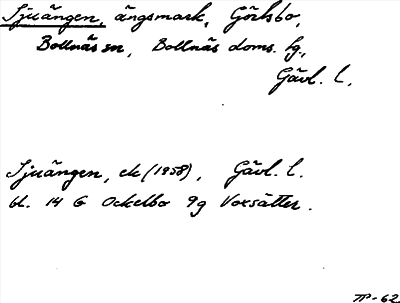 Sjuängen, ängsmark, Görtsbo,
Bollnäs sn, Bollnäs doms. fg.,
Gävl. l.
Sjuängen, ek (1958), Gävl. l.
bl. 14 G Ockelbo 9g Voxsätter.
TP-62